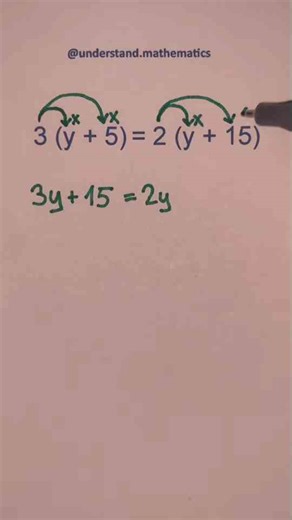 @understand.mathematics
x x x
3 (y + 5) = 2 (y + 15)
3y + 15 = 2y